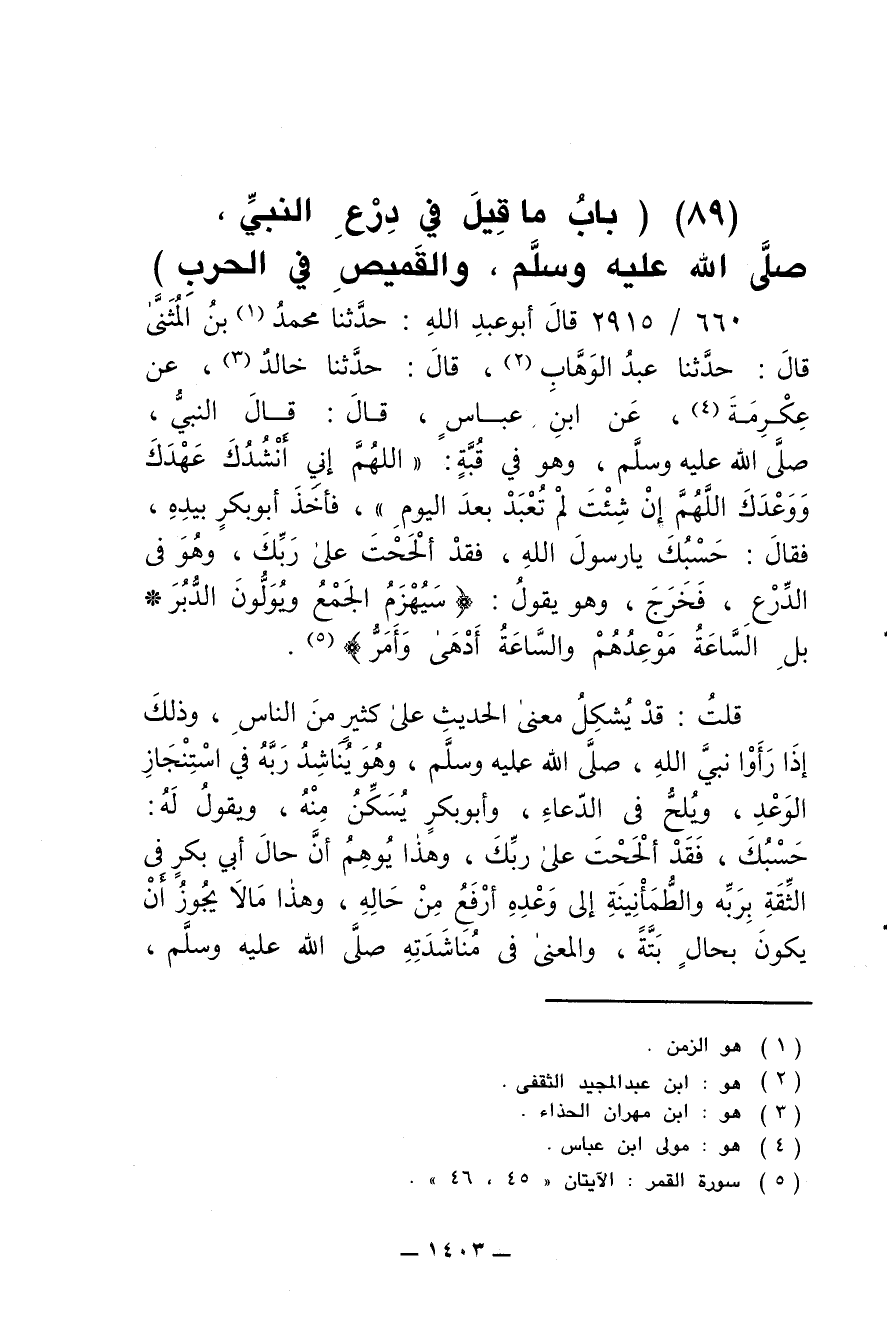 (٨٩) ( بابُ ما قِيلَ في دِرْعِ النبيِّ ،
صلَّى الله عليه وسلَّم ، والقَميصِ في الحربِ )
٦٦٠ / ٢٩١٥ قالَ أبوعبدِ اللهِ : حدَّثنا محمدُ (١) بنُ المُثنَّىٰ
قالَ : حدَّثنا عبدُ الوَهَّابِ (٢) ، قالَ : حدَّثنا خالدٌ (٣) ، عن
عِكْرِمَةَ (٤) ، عَن ابنِ عبـاسٍ ، قـالَ : قـالَ النبيُّ ،
صلَّى الله عليه وسلَّم ، وهو في قُبَّةٍ : « اللهُمَّ إني أَنْشُدُكَ عَهْدَكَ
وَوَعْدَكَ اللَّهُمَّ إنْ شِئْتَ لمْ تُعْبَدْ بعدَ اليومِ » ، فأخَذَ أبوبكرٍ بيدِهِ ،
فقالَ : حَسْبُكَ يارسولَ اللهِ ، فقدْ ألْحَحْتَ علىٰ رَبِّكَ ، وهُوَ فى
الدِّرْعِ ، فَخَرَجَ ، وهو يقولُ : ﴿ سَيُهْزَمُ الجَمْعُ ويُوَلُّونَ الدُّبُرَ *
بلِ السَّاعَةُ مَوْعِدُهُمْ والسَّاعَةُ أَدْهَىٰ وَأَمَرُّ ﴾ (٥) .
قلتُ : قدْ يُشكِلُ معنىٰ الحديثِ علىٰ كثيرٍ منَ الناسِ ، وذلكَ
إذَا رَأَوْا نبيَّ اللهِ ، صلَّى الله عليه وسلَّم ، وهُوَ يُنَاشِدُ رَبَّهُ في اسْتِنْجَازِ
الوَعْدِ ، ويُلحُّ فى الدّعاءِ ، وأبوبكرٍ يُسَكِّنُ مِنْهُ ، ويقولُ لَهُ :
حَسْبُكَ ، فَقَدْ ألْحَحْتَ علىٰ ربِّكَ ، وهذا يُوهِمُ أنَّ حالَ أبي بكرٍ فى
الثِّقَةِ بِرَبِّه والطُّمَأْنِينَةِ إلى وَعْدِهِ أرْفَعُ مِنْ حَالِهِ ، وهذٰا مَالَا يجُوزُ أَنْ
يكونَ بحالٍ بَتَّةً ، والمعنىٰ فى مُنَاشَدَتِهِ صلَّى الله عليه وسلَّم ،
(١) هو الزمن .
(٢) هو : ابن عبدالمجيد الثقفى .
(٣) هو : ابن مهران الحذاء .
(٤) هو : مولى ابن عباس .
(٥) سورة القمر : الآيتان « ٤٥ ، ٤٦ » .
ــ ١٤٠٣ ــ